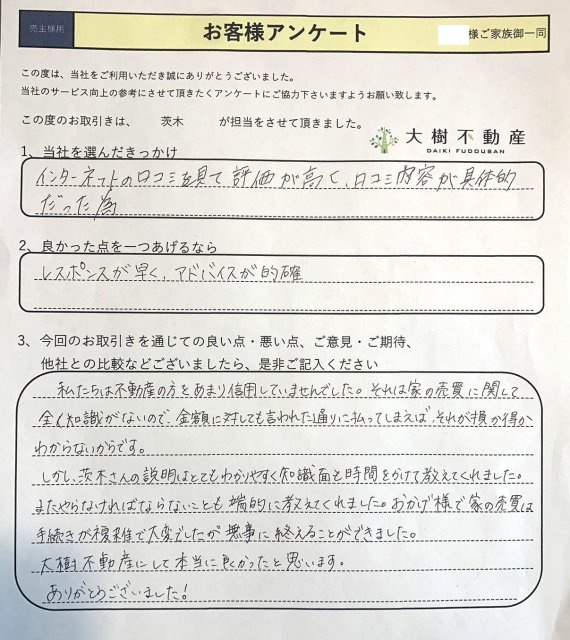 売主様用
お客様アンケート
様ご家族御一同
この度は、当社をご利用いただき誠にありがとうございました。
当社のサービス向上の参考にさせて頂きたくアンケートにご協力下さいますようお願い致します。
この度のお取引きは、 茨木 が担当をさせて頂きました。
大樹不動産
DAIKI FUDOUSAN
1、当社を選んだきっかけ
インターネットの口コミを見て評価が高く、口コミ内容が具体的
だった為
2、良かった点を一つあげるなら
レスポンスが早く、アドバイスが的確
3、今回のお取引きを通じての良い点・悪い点、ご意見・ご期待、
他社との比較などございましたら、是非ご記入ください
私たちは不動産の方をあまり信用していませんでした。それは家の売買に関して
全く知識がないので、金額に対しても言われた通りに払ってしまえば、それが損か得か
わからないからです。
しかし、茨木さんの説明はとてもわかりやすく知識面と時間をかけて教えてくれました。
またやらなければならないことも端的に教えてくれました。おかげ様で家の売買は
手続きが複雑で大変でしたが無事に終えることができました。
大樹不動産にして本当に良かったと思います。
ありがとうございました!